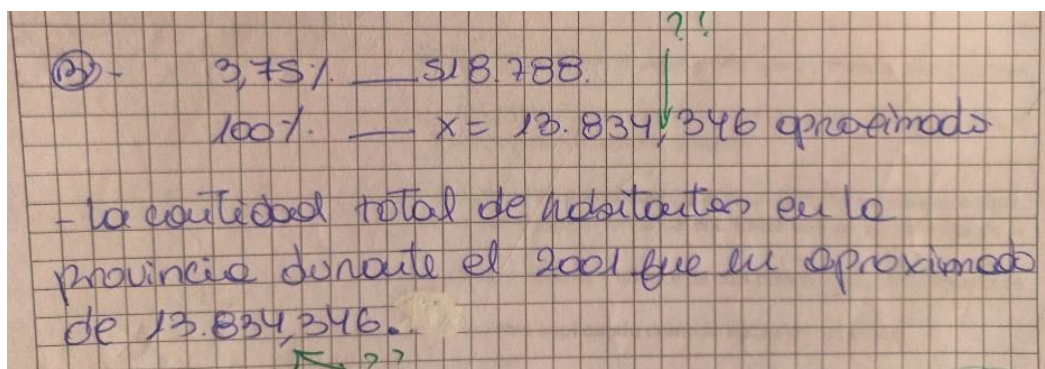 ??
B)- 3,75%. ___ 518.788.
100%. ___ x = 13.834,346 aproximado
- La cantidad total de habitantes en la
provincia durante el 2001 fue en aproximado
de 13.834,346.
??